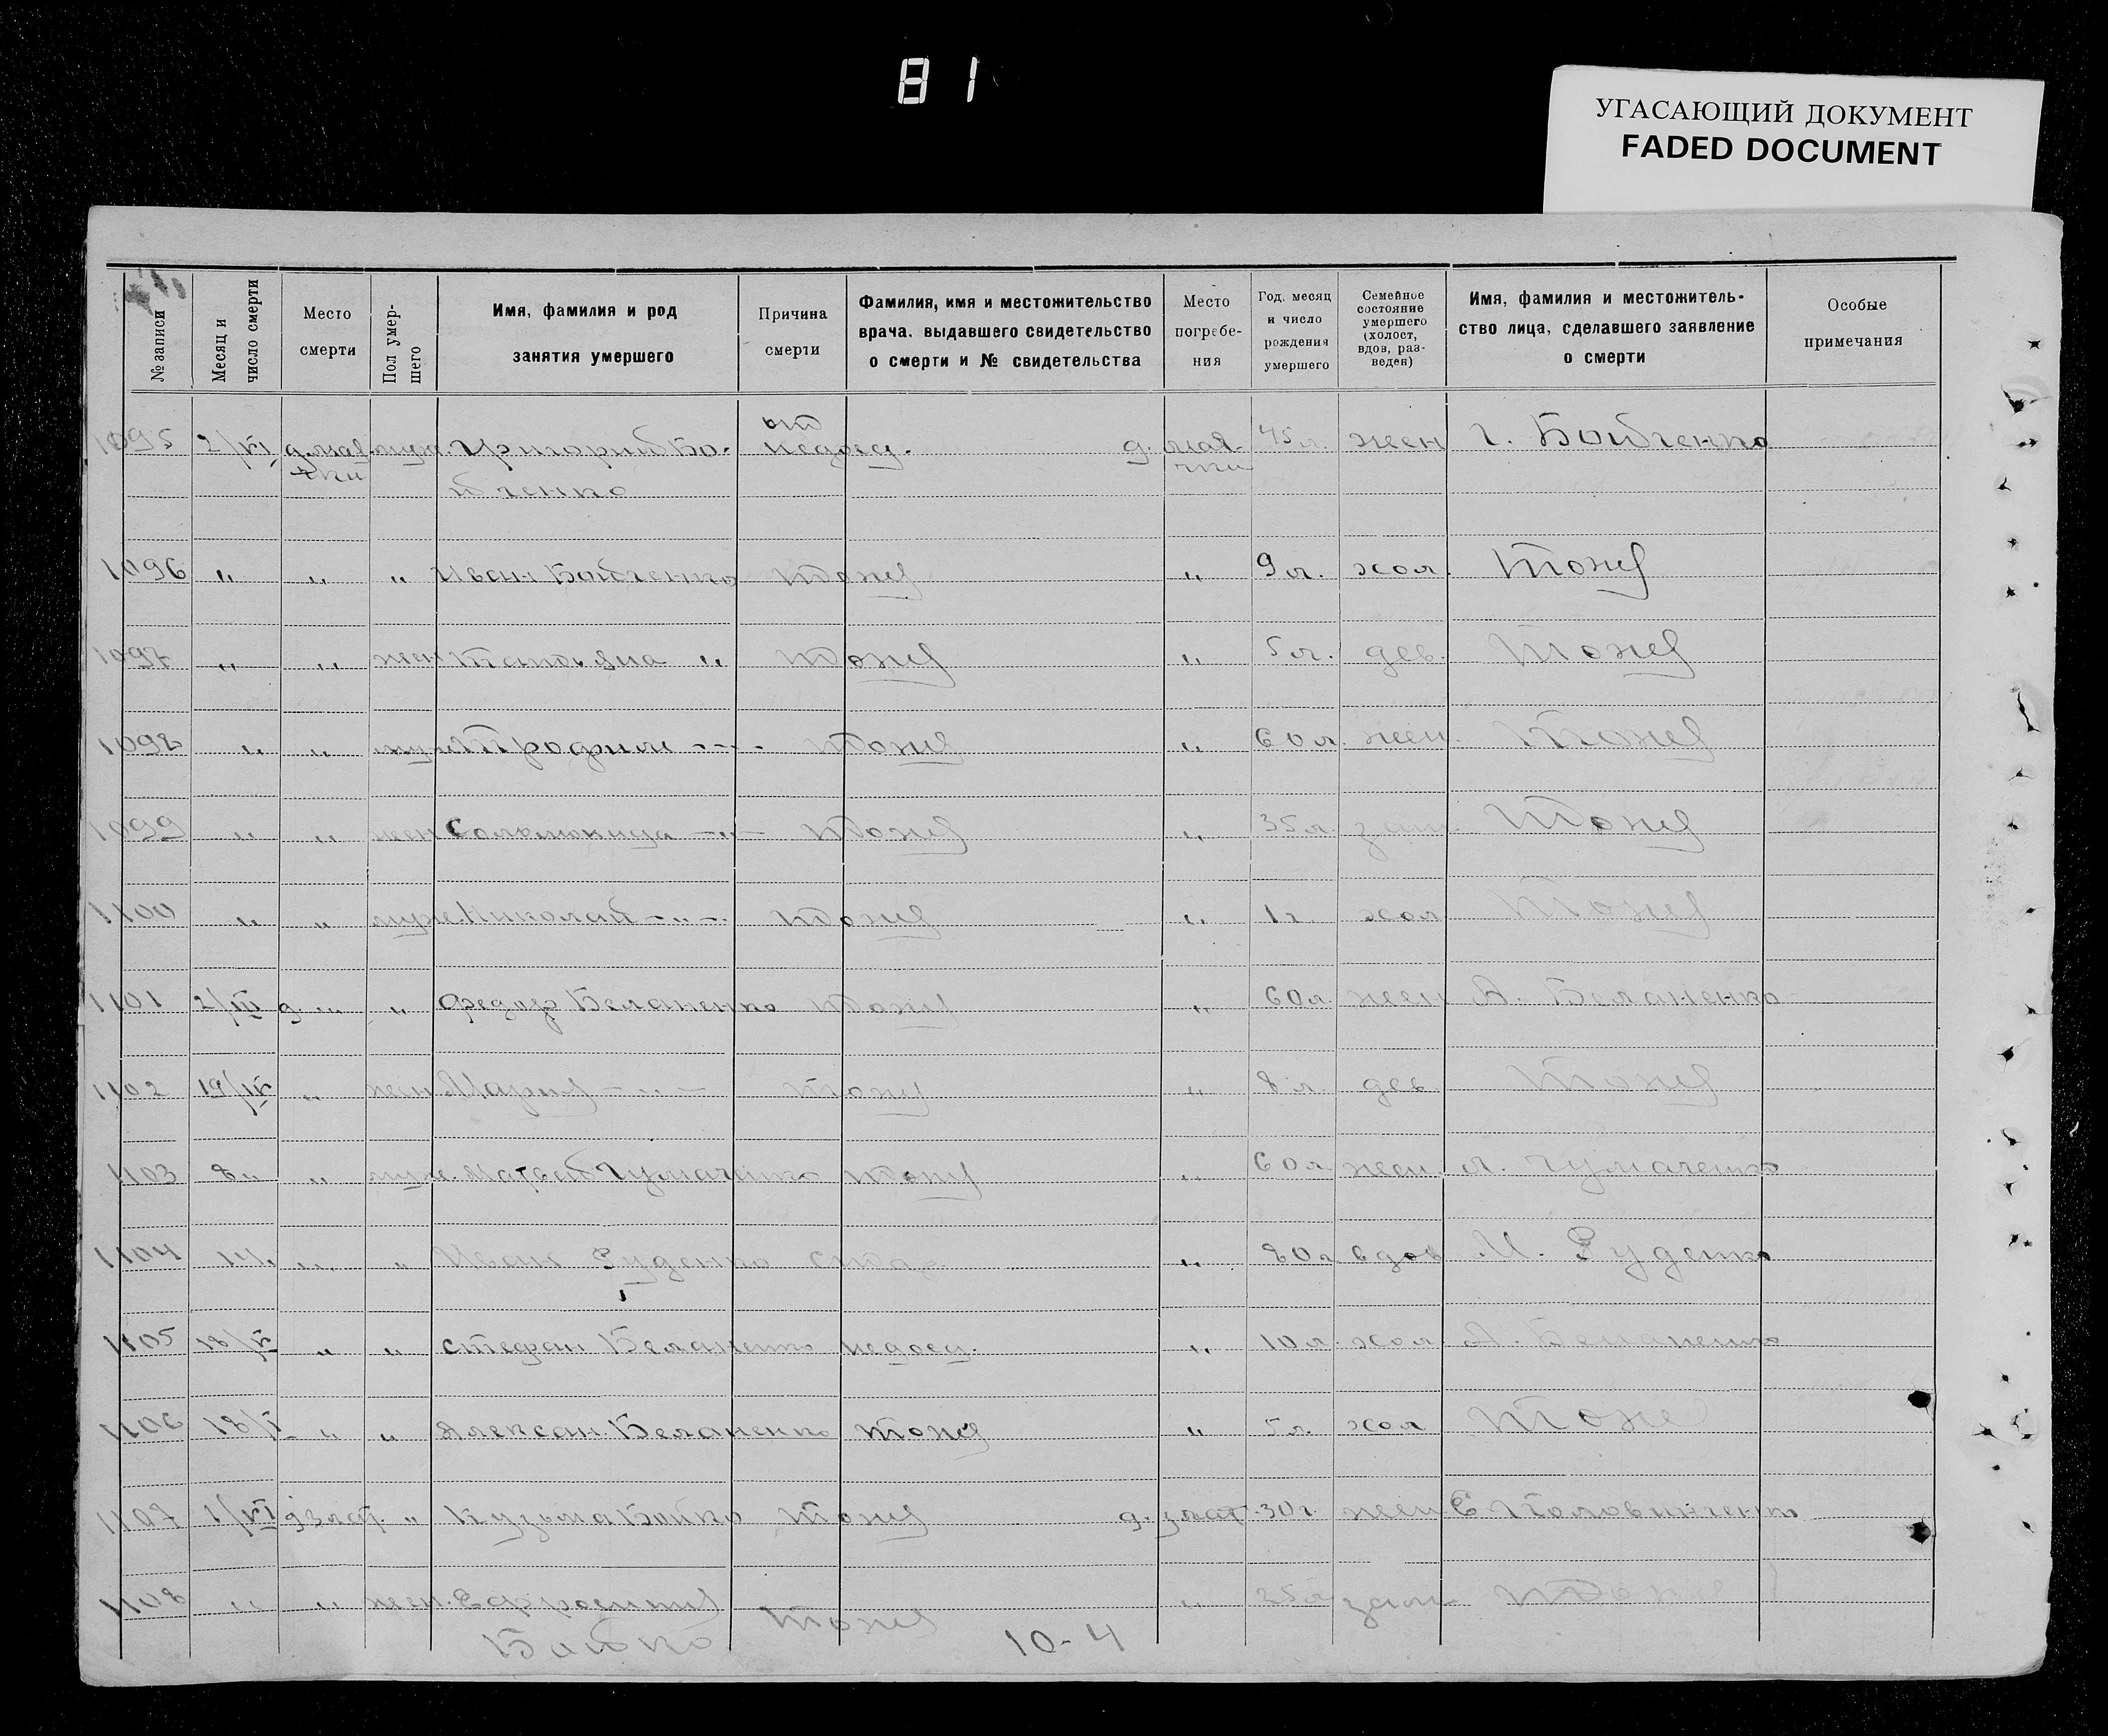 81
УГАСАЮЩИЙ ДОКУМЕНТ
FADED DOCUMENT
№ записи
Месяц и число смерти
Место смерти
Пол умер-шего
Имя, фамилия и род занятия умершего
Причина смерти
Фамилия, имя и местожительство врача, выдавшего свидетельство о смерти и № свидетельства
Место погребе-ния
Год, месяц и число рождения умершего
Семейное состояние умершего (холост, вдов, раз-веден)
Имя, фамилия и местожитель-ство лица, сделавшего заявление о смерти
Особые примечания
от
1095 2/VI муж Григорий Бо- недоед. д. мая- 45 л. жен Г. Бойченко
чки
йченко
1096 " " " Иван Бойченко тоже " 9 л. хол. тоже
1097 " " жен " тоже " 5 л. дев. тоже
1098 " " муж Трофим -"- тоже " 60 л. жен. тоже
1099 " " жен -"- тоже " 35 л. зам. тоже
1100 " " муж. Николай -"- тоже " 1 г. хол тоже
1101 2/III д " " Федор Беланенко тоже " 60 л. жен Беланенко
1102 19/IV " жен Мария -"- тоже " 8 л. дев тоже
1103 8 " " муж. Матвей Чумаченко тоже " 60 л. жен. Чумаченко
1104 14 " " " Иван Руденко стар. " 80 л вдов М. Руденко
1105 18/V " " Стефан Беланенко недоед. " 10 л. хол. Беланенко
1106 18/V " " Алексан. Беланенко тоже " 5 л. хол тоже
1107 1/VI д злат. " Кузьма Бойко тоже д. злат. 30 г. жен Е. Половинченко
1108 " " жен. Ефросиния тоже " 25 л зам тоже
Бойко 10-4